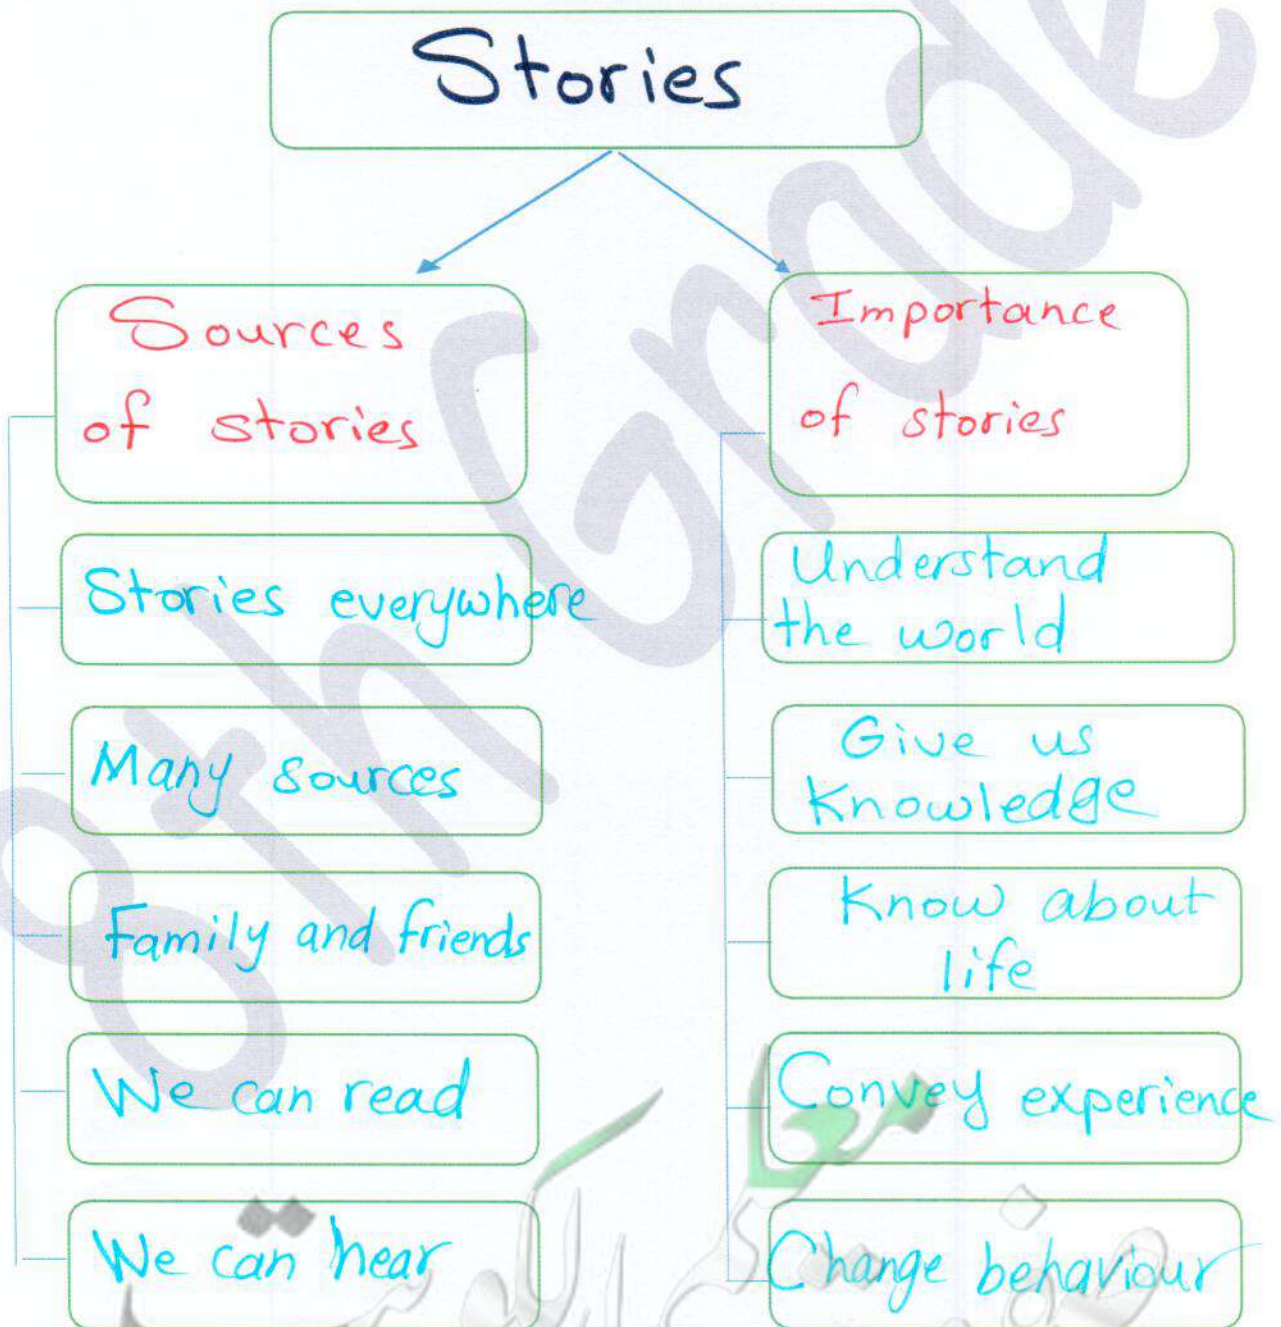 Stories
Sources
of stories
Stories everywhere
Many sources
Family and friends
We can read
We can hear
Importance
of stories
Understand
the world
Give us
Knowledge
Know about
life
Convey experience
Change behaviour
8th Grade